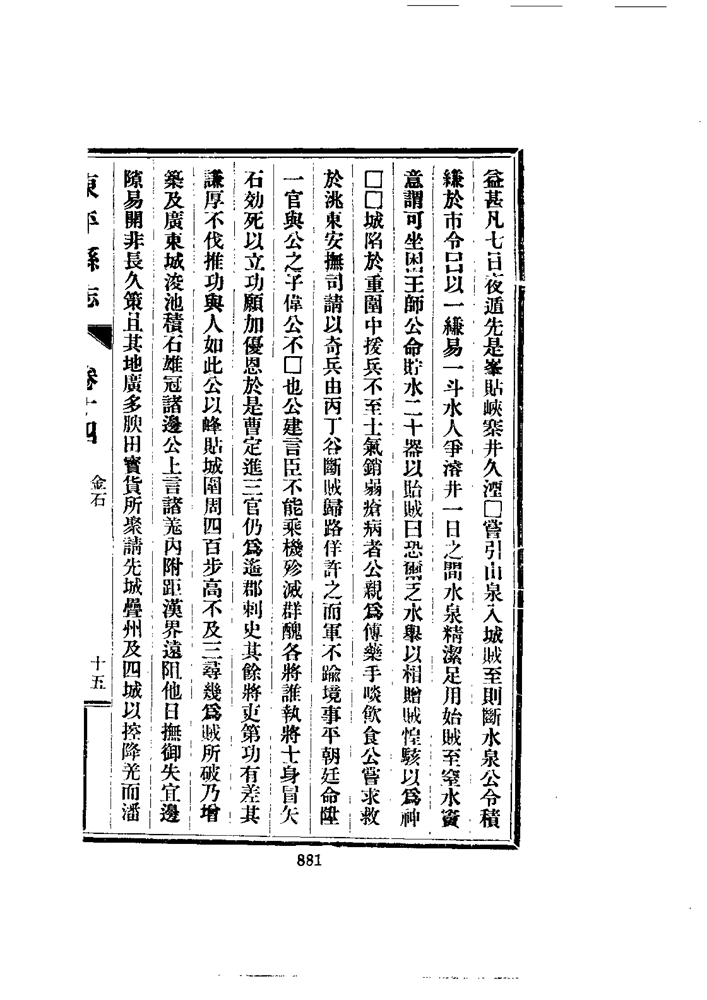 益甚凡七日夜遁先是峯貼峽寨井久湮□嘗引山泉入城賊至則斷水泉公令積
縑於市令曰以一縑易一斗水人爭濬井一日之間水泉精潔足用始賊至窒水竇
意謂可坐困王師公命貯水二十器以貽賊曰恐爾乏水舉以相贈賊惶駭以爲神
□□城陷於重圍中援兵不至士氣銷弱瘡病者公親爲傅藥手啖飲食公嘗求救
於洮東安撫司請以奇兵由丙丁谷斷賊歸路佯許之而軍不踰境事平朝廷命陞
一官與公之子偉公不□也公建言臣不能乘機殄滅群醜各將誰執將士身冒矢
石効死以立功願加優恩於是曹定進三官仍爲遥郡刺史其餘將吏第功有差其
謙厚不伐推功與人如此公以峰貼城圍周四百步高不及三尋幾爲賊所破乃增
築及廣東城浚池積石雄冠諸邊公上言諸羌內附距漢界遠阻他日撫御失宜邊
隙易開非長久策且其地廣多腴田寳貨所衆請先城疊州及四城以控降羌而潘
東平縣志 卷十四 金石 十五
881